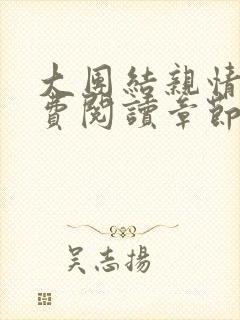 大團結親情
費閱讀章節
吳志揚